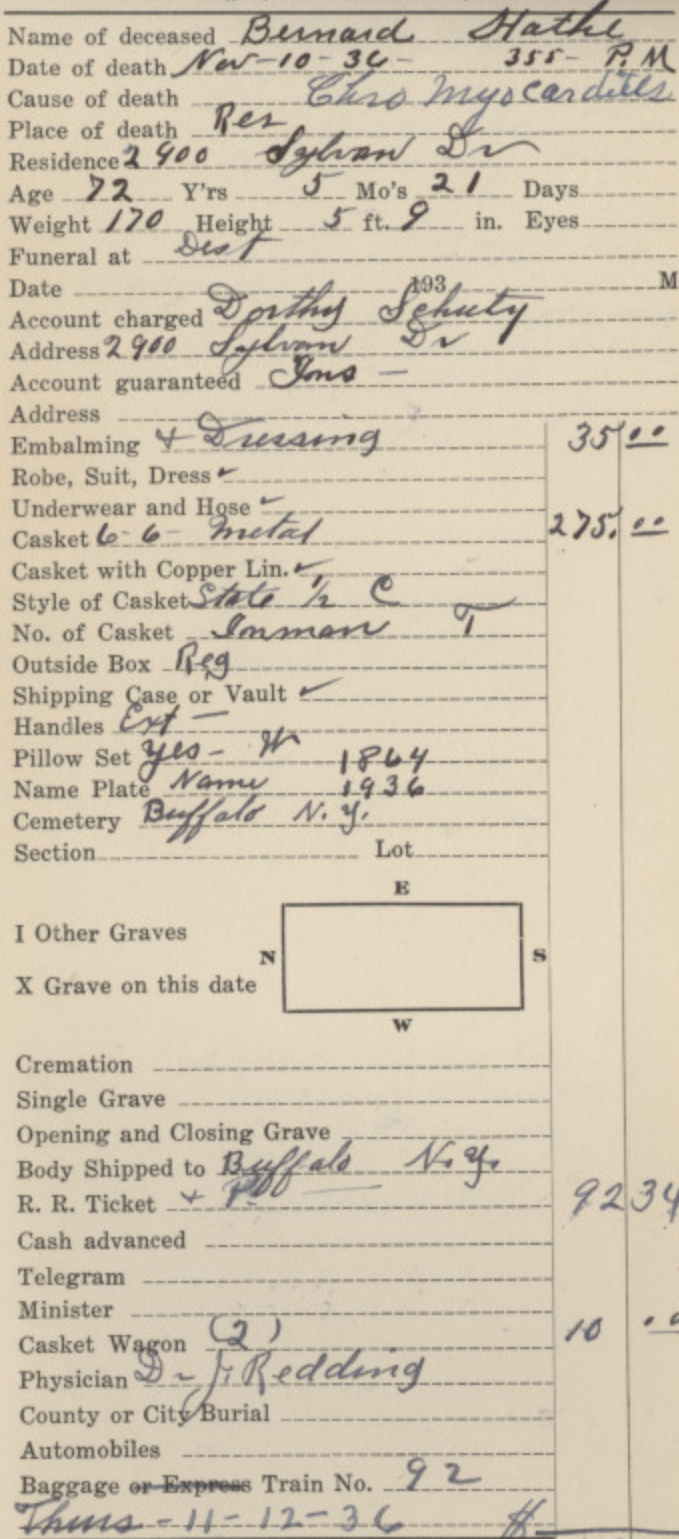 Name of deceased Bernard Stathe
Date of death Nov-10-36- 355- P.M
Cause of death Chro Myocardites
Place of death Res
Residence 2900 Sylvan Dr
Age 72 Y'rs 5 Mo's 21 Days
Weight 170 Height 5 ft. 9 in. Eyes
Funeral at Dest
Date 193 M
Account charged Dorthy Schuty
Address 2900 Sylvan Dr
Account guaranteed Ins -
Address
Embalming & Dressing 35 00
Robe, Suit, Dress ✓
Underwear and Hose ✓
Casket 6-6- Metal 275. 00
Casket with Copper Lin. ✓
Style of Casket State 1/2 C
No. of Casket Inman T
Outside Box Reg
Shipping Case or Vault ✓
Handles Ext -
Pillow Set yes - W 1864
Name Plate Name 1936
Cemetery Buffalo N.Y.
Section Lot
E
I Other Graves
N S
X Grave on this date
W
Cremation
Single Grave
Opening and Closing Grave
Body Shipped to Buffalo N.Y.
R. R. Ticket + 92 34
Cash advanced
Telegram
Minister
Casket Wagon (2) 10 00
Physician Dr J. Redding
County or City Burial
Automobiles
Baggage or Express Train No. 92
Thurs - 11-12-36 $